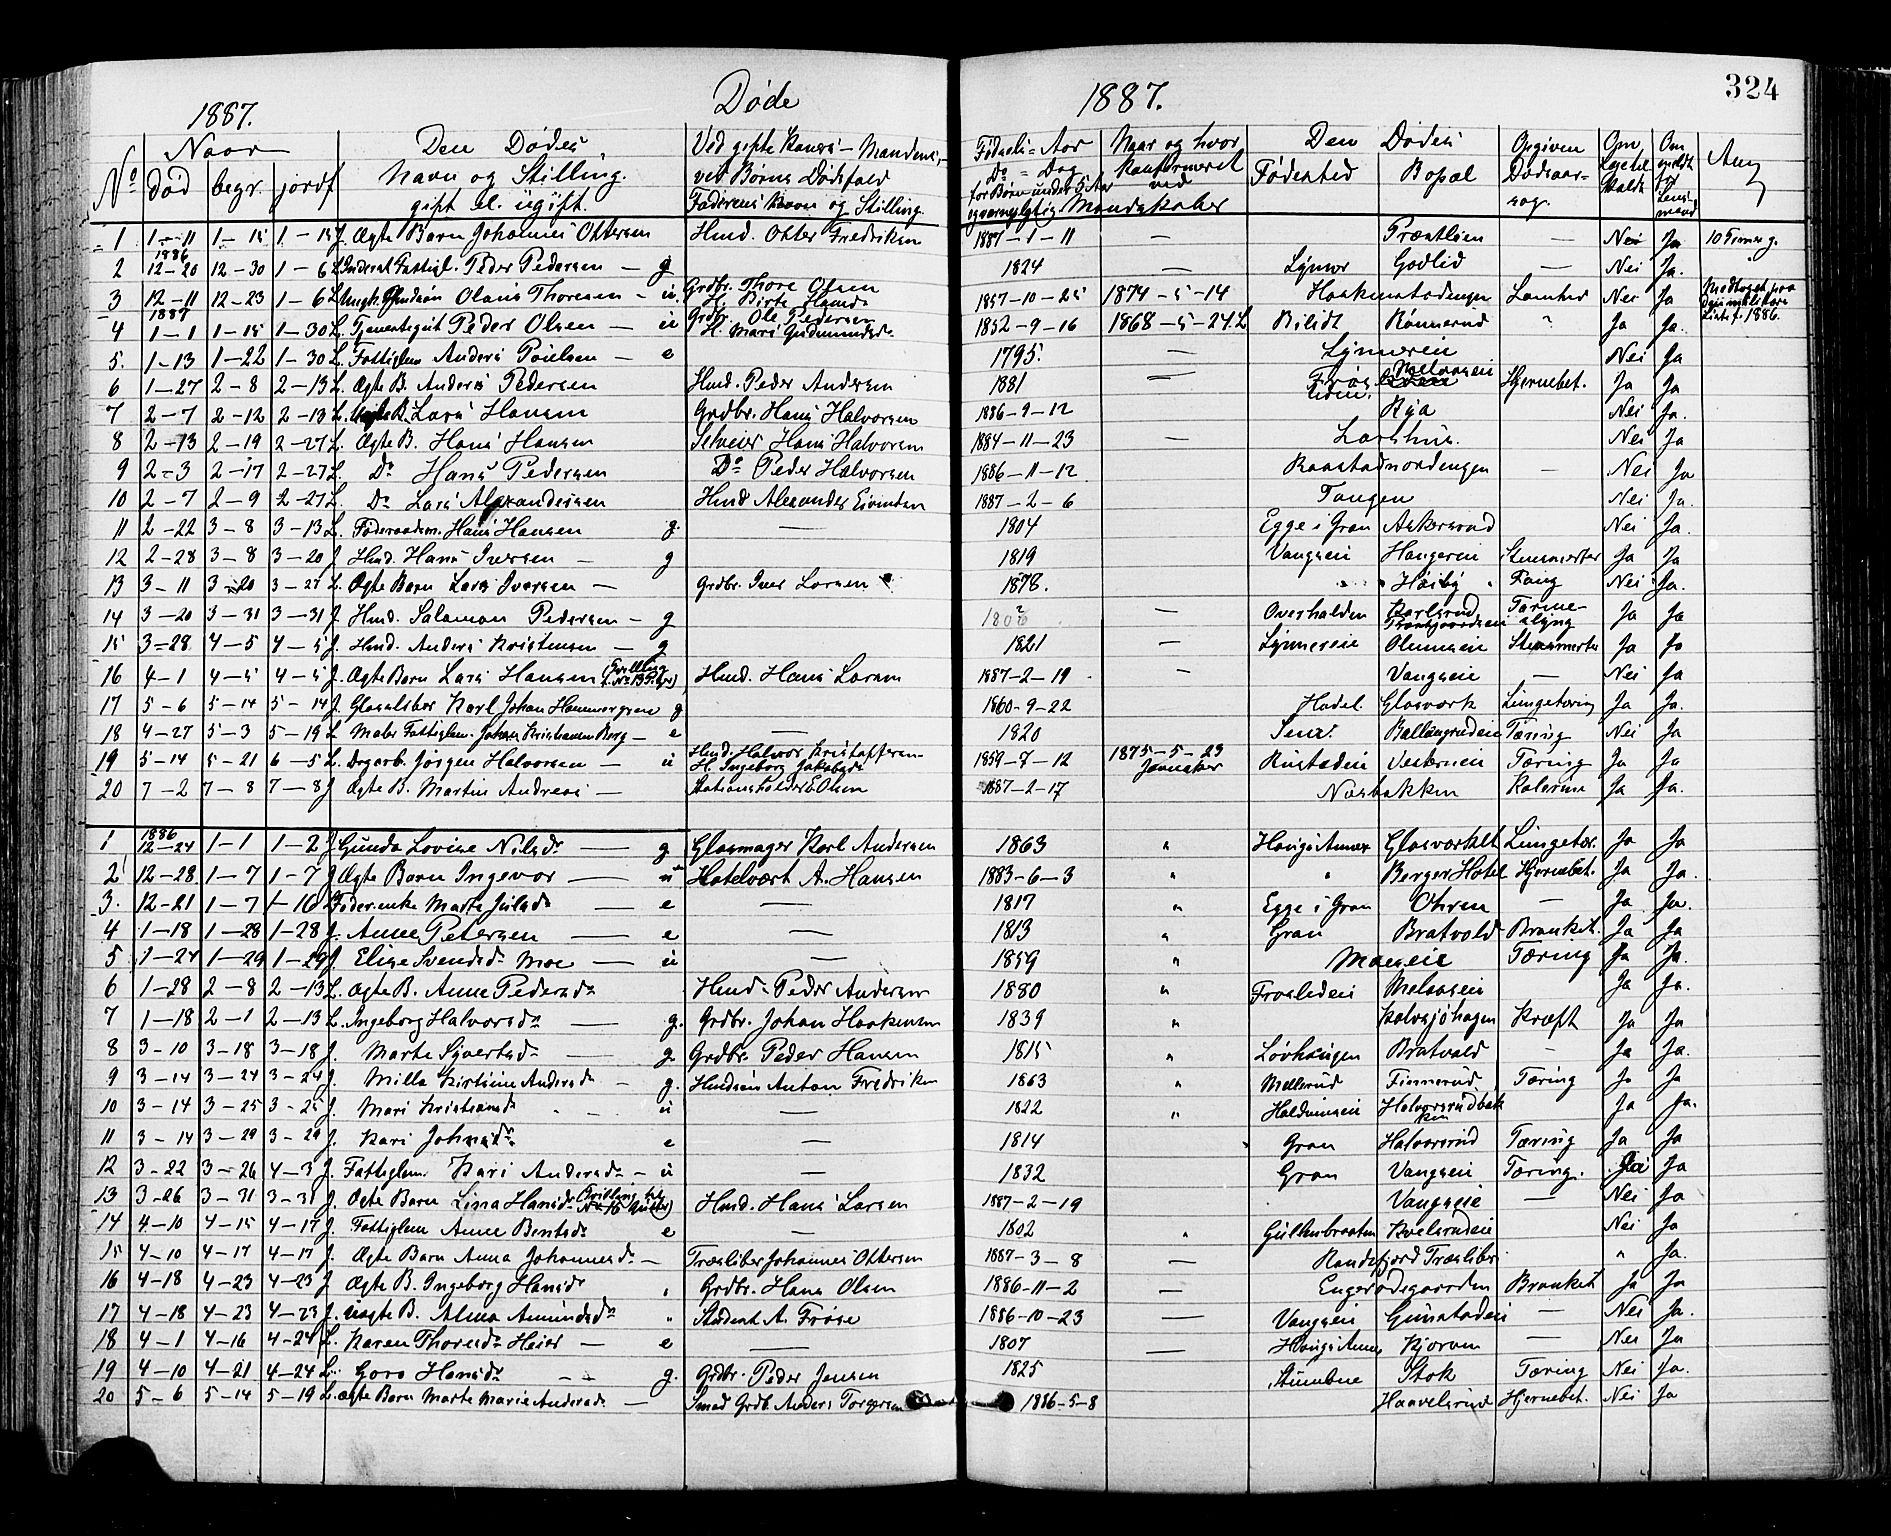 324
1887. Døde 1887.
No Naar død begr. jordf. Den Dødes Navn og Stilling. gift el. ugift. Ved gifte Koners Mandens, ved Børns Dødsfald Faderens Navn og Stilling. Fødsels-Aar Do-Dag for Børn under 5 Aar og værnepligtig Mandskaber Naar og hvor konfirmeret Den Dødes Fødested Bopæl Opgiven Dødsaarsag. Om Lægetilsyn Om meldt for Lensmand Anm
1 1-11 1-15 1-15 J. Ægte Barn Johannes Ottersen Hmd. Otter Fredriksen 1887-1-11 — — Nei Ja 10 Timer g.
2 1886 12-20 12-30 1-6 L. Fattigl. Peder Pedersen — g 1824 — Lynner Godlid — Nei Ja.
3 12-11 12-23 1-6 L. Olaus Thoresen — u. Grdbr. Thore Olsen H. Birte Hansd. 1857-10-25 1874-5-14 Haakenstadengen Nei Ja
4 1887 1-1 1-15 1-30 L. Tjenestegut Peder Olsen — u Grdbr. Ole Pedersen H. Mari Gudmundsdr 1852-9-16 1868-5-24 L Bilidt Rønnerud " Ja Ja.
5. 1-13 1-22 1-30 L. Fattiglem Anders Poulsen — e 1795. — Lynnereie Nei Ja
6 1-27 2-8 2-13 L. Ægte B. Anders Pedersen Hmd. Peder Andersen 1881 — Melaaseie Hjernebet. Ja Ja
7 2-7 2-12 2-13 L. B. Lars Hansen Grdbr. Hans Halvorsen 1886-9-12 Rya Nei Ja.
8 2-13 2-19 2-27 L. Ægte B. Hans Hansen Selveier Hans Halvorsen 1884-11-23 — Larshus. Nei Ja
9 2-3 2-17 2-27 L. Do Hans Pedersen Do Peder Halvorsen 1886-11-12 Raastadnordengen — Nei Ja
10 2-7 2-9 2-27 L. Do Lars Alexandersen Hmd Alexander Eivindsen 1887-2-6 Tangen Nei Ja.
11 2-22 3-8 3-13 L. Føderaadsm. Hans Hansen g — 1804 Egge i Gran Askersrud Nei Ja.
12 2-28 3-8 3-20 J. Hmd. Hans Iversen — g 1819 Vangseie Haugereie Ja Ja
13 3-11 3-20 3-27 L. Ægte Barn Lars Iversen — Grdbr. Iver Larsen 1878. " Høiby " Nei Ja.
14 3-20 3-31 3-31 J. Hmd. Salamon Pedersen — g — Overhalden Tarmeslyng Ja Ja
15 3-28 4-5 4-5 J. Hmd. Anders Kristensen — g 1821 — Lynnereie Olumseie Ja Ja
16 4-1 4-5 4-5 J. Ægte Barn Lars Hansen (Tvilling t. No 13 Piger) Hmd. Hans Larsen 1887-2-19 — Vangseie — Nei Ja
17 5-6 5-14 5-14 J. Glassliber Karl Johan Hammergren g 1860-9-22 Hadel. Glasværk Lungetæring Ja Ja.
18 4-27 5-3 5-19 L. Maler Fattiglem. Johan Kristiansen Berg — e — 1820 Ballangrudeie Tæring Nei Ja
19 5-14 5-21 6-5 L. Dagarb. Jørgen Halvorsen — u Hmd. Halvor Kristoffersen H. Ingeborg Jakobsdr 1859-7-12 1875-5-23 Jevnaker Rustadeie Vesterneie Tæring Ja Ja
20 7-2 7-8 7-8 J Ægte B. Martin Andreas — Stationsholder E. Olsen 1887-2-17 Næsbakken Kolerine Ja Ja.
1 1886 12-24 1-1 1-2 J Gunda Lovise Nilsdr — g Glasmager Karl Andersen 1863 " Haugs Annex Glasværket Lungetær. Ja Ja
2 12-28 1-7 1-7 J Ægte Barn Ingevor — u Hotelvært A. Hansen 1883-6-3 " " Berger Hotel Hjernebet. Ja Ja.
3. 12-21 1-7 1-16 Føderenke Marte Julsdr — e — 1817 " Egge i Gran Ohren — Ja Ja.
4 1-18 1-28 1-28 J. Anne Petersen — e — 1813 " Gran Bratvold Bronket. Ja Ja
5 1-24 1-29 1-29 J. Elise Svendsdr Moe — u — 1859 " Moeseie Tæring Ja Ja.
6 1-28 2-8 2-13 L. Ægte B. Anne Pedersdr Hmd. Peder Andersen 1880 " Froslideie Melaaseie Ja Ja.
7 1-18 2-1 2-13 L. Ingeborg Halvorsdr — g. Grdbr. Johan Haakensen 1839 " Kalvsjøhagen Kræft Ja Ja
8 3-10 3-18 3-18 J. Marte Syvertsdr — g Grdbr. Peder Hansen 1815 " Løvhaugen Bratvold — Ja Ja.
9 3-14 3-24 3-24 J. Milla Kirstine Andersdr — g. Hmdssøn Anton Fredriksen 1863 " Mellerud Finnerud Tæring Ja Ja
10 3-14 3-25 3-25 J. Mari Kristiansdr — u — 1822 " Haldumseie Halvorsrudbakken Ja Ja.
11 3-14 3-29 3-29 J. Kari Johnsdr e — 1814 Gran Halvorsrud Tæring Ja Ja
12 3-22 3-26 4-3 J. Fattiglem. Kari Andersdr — u — 1832 Gran Vangseie Tæring. Ja Ja
13 3-26 3-31 3-31 J. Ægte Barn Lina Hansdr (Tvilling til No 16 Gutter) Hmd. Hans Larsen 1887-2-19 Vangseie — Nei Ja
14 4-10 4-15 4-17 J. Fattiglem Anne Bentsdr e — 1802 " Gulhusbraaten Nei Ja
15 4-10 4-17 4-17 J. Ægte Barn Anna Johannesdr — Træsliber Johannes Ottersen 1887-3-8 — Randsfjord Træsliberi " Ja.
16 4-18 4-23 4-23 J Ægte B. Ingeborg Hansdr " Grdbr. Hans Olsen 1886-11-2 — Engerodsgaarden Bronket Ja Ja
17 4-18 4-23 4-23 J. Uægte B. Alma Amundsdr " Student A. Frøse 1886-10-23 — Vangseie Gunstadeie — Nei Ja.
18 4-1 4-16 4-24 L. Karen Thorsdr Heier — e — 1807 — Haugs Annex Kjorven — Nei Ja
19 4-10 4-21 4-24 L. Goro Hansdr — g. Grdbr. Peder Jensen 1825 Stumbne Stok Tæring Nei Ja.
20 5-6 5-14 5-19 L. Ægte Barn Marte Marie Andersdr — Smed Grdb. Anders Torgersen 1886-5-8 Haavelsrud Hjernebet. Nei Ja